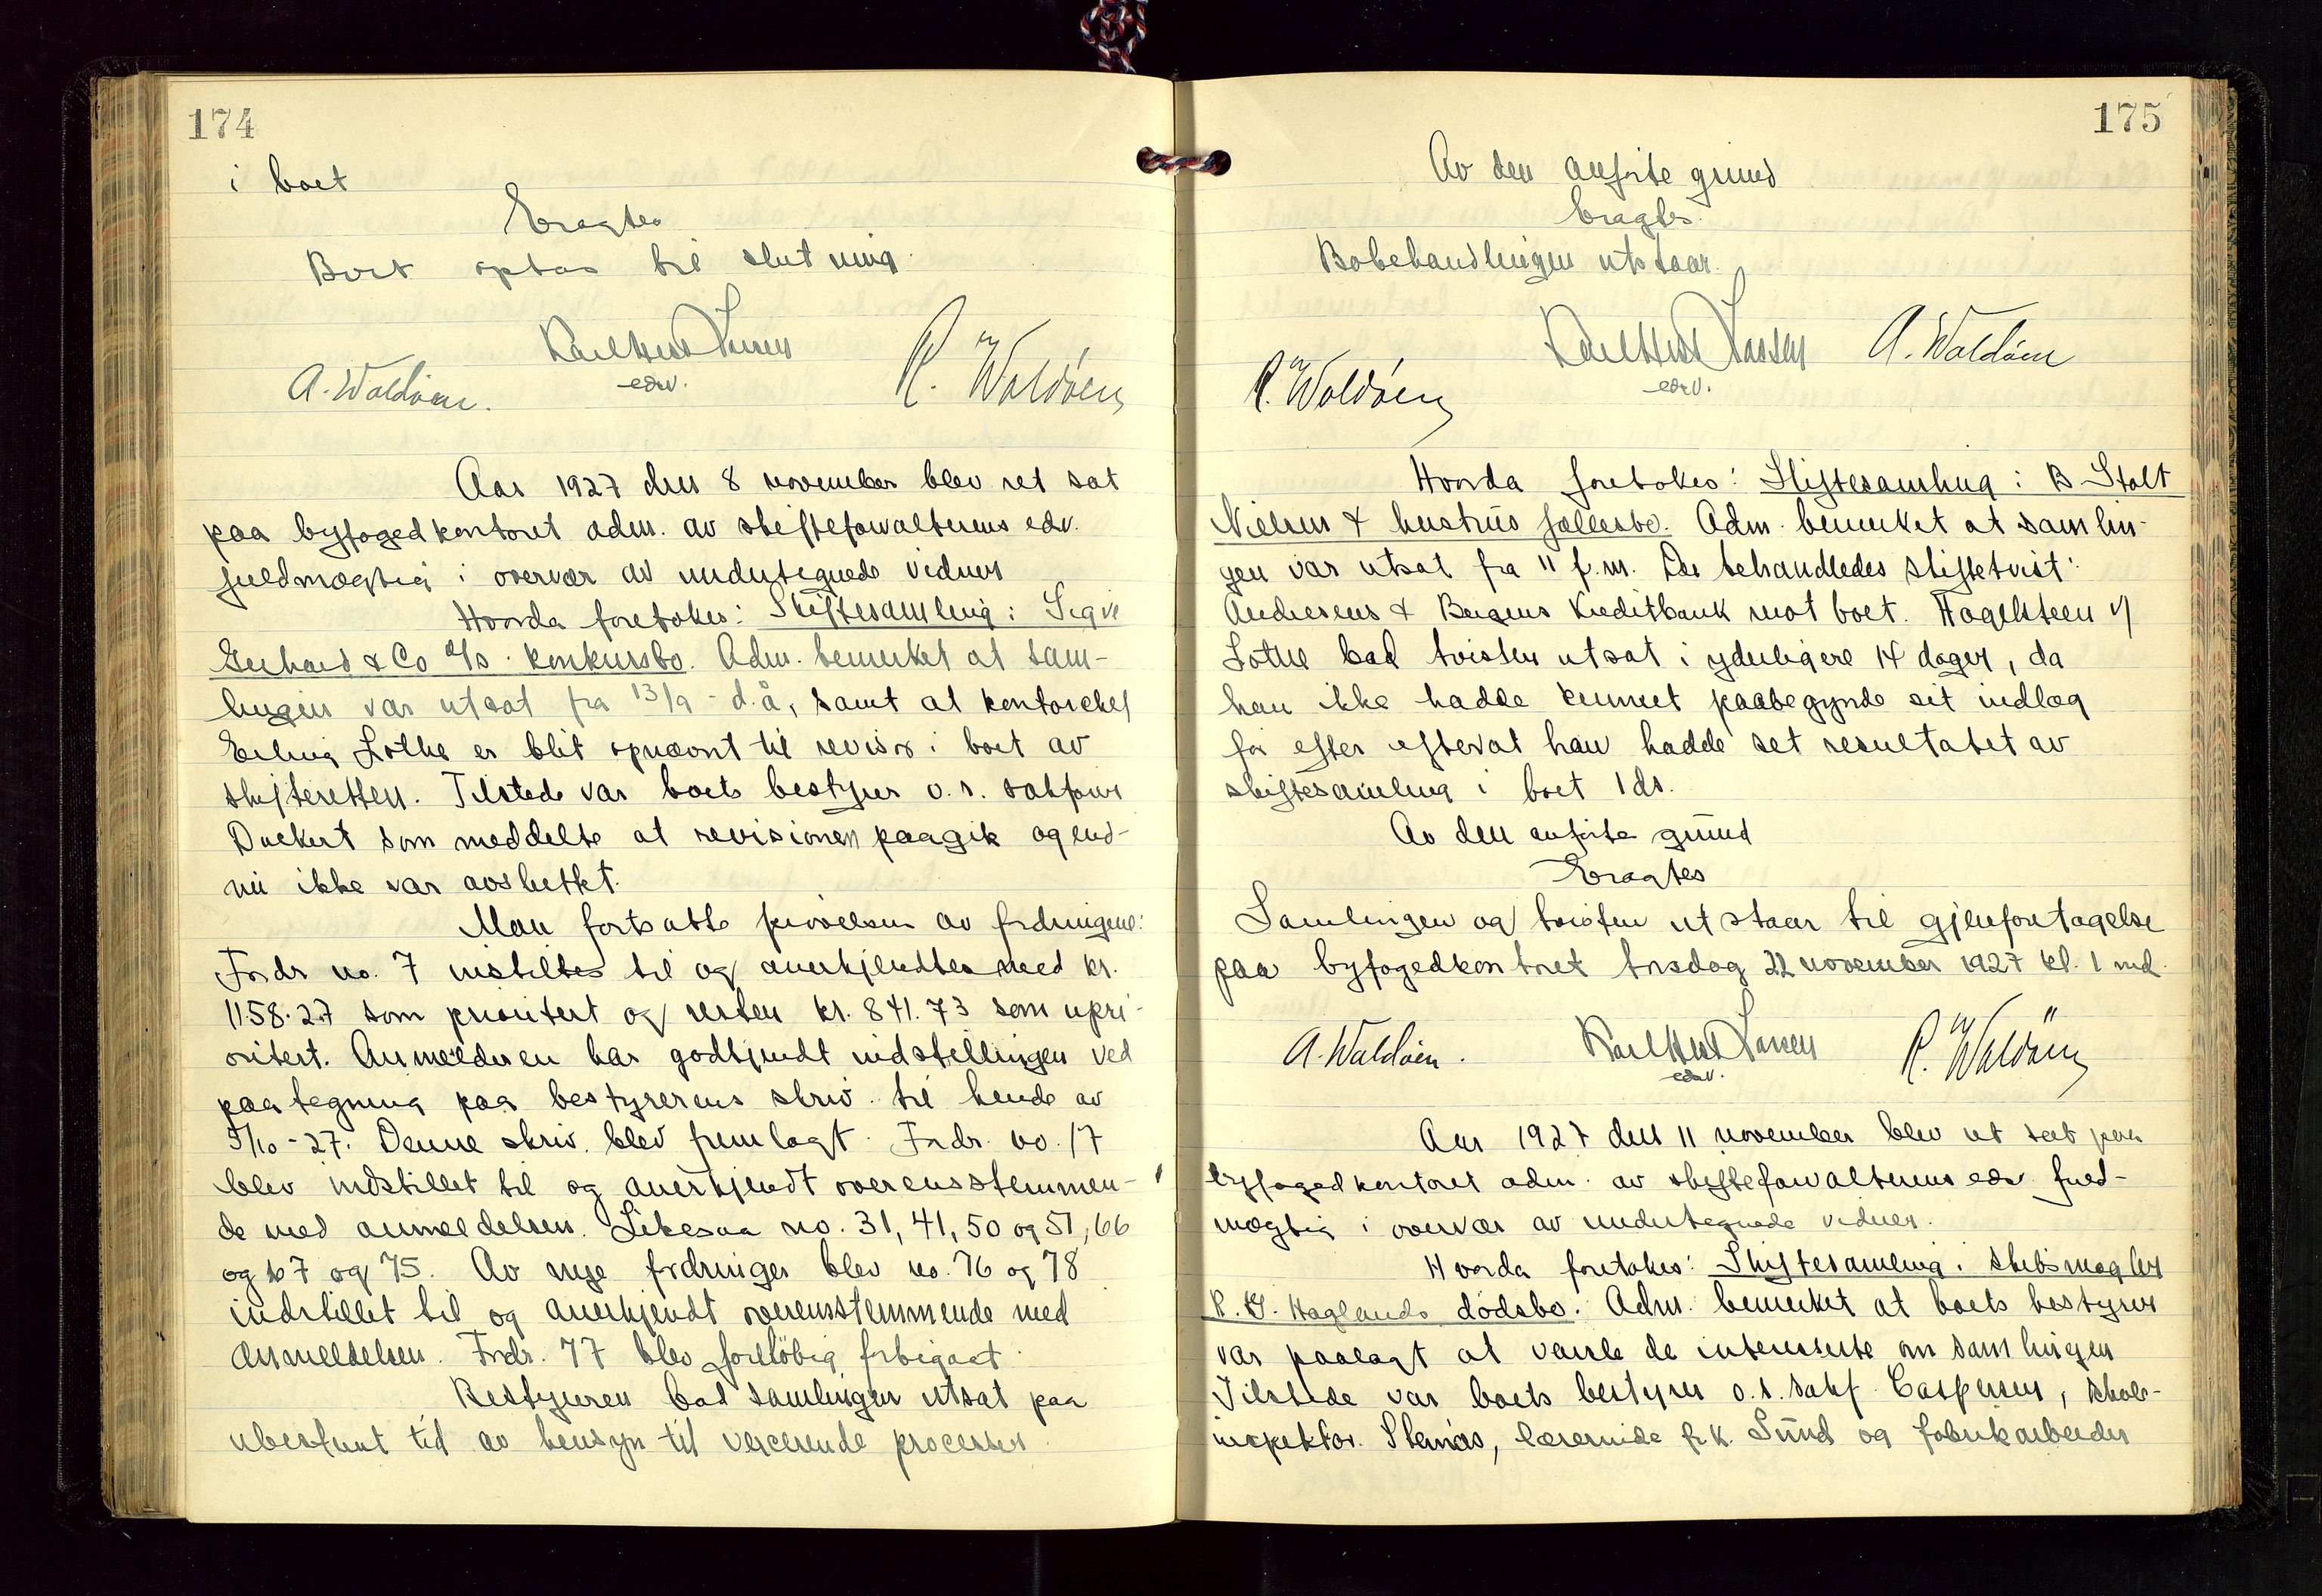 174
i boet
Eragtes
Boet optas til slutning.
Karl Hess Larsen
edsv.
A. Waldöen.
R. Waldöen
Aar 1927 den 8 november blev ret sat
paa byfogedkontoret adm. av skifteforvalterens edsv.
fuldmægtig i overvær av undertegnede vidner
Hvorda foretokes: Skiftesamling i Sigv
Gerhard & Co A/S. konkursbo. Adm. bemerket at sam-
lingen var utsat fra 13/9 - d.å, samt at kontorchef
Erling Lothe er blit opnævnt til revisor i boet av
skifteretten. Tilstede var boets bestyrer o.r. sakfører
Dockert som meddelte at revisionen paagik og end-
nu ikke var avsluttet.
Man fortsatte prøvelsen av fordringene:
Fordr no. 7 instiltes til og anerkjendtes med kr.
1158.27 som prioritert og resten kr. 841.73 som upri-
oritert. Anmelderen har godkjendt indstillingen ved
paategning paa bestyrerens skriv. til hende av
5/10-27. Denne skriv. blev fremlagt. Fordr. no. 17
blev indstillet til og anerkjendt overensstemmen-
de med anmeldelsen. Likesaa no. 31, 41, 50 og 51, 66
og 67 og 75. Av nye fordringer blev no. 76 og 78
indstillet til og anerkjendt overensstemmende med
anmeldelsen. Fordr. 77 blev forelöbig forbigaat.
Bestyreren bad samlingen utsat paa
ubestemt tid av hensyn til verserende processer
175
Av den anförte grund
Eragtes.
Bobehandlingen utstaar.
Karl Hess Larsen
edsv.
A. Waldöen
R. Waldöen
Hvorda foretokes: Skiftesamling i B. Stolt
Nielsen & hustrus fællesbo. Adm. bemerket at samlin-
gen var utsat fra 11 f.m. Der behandledes skiftetvist:
Andresens & Bergens Kreditbank mot boet. Hagelsteen v/
Lothe bad tvisten utsat i yderligere 14 dager, da
han ikke hadde kunnet paabegynde sit indlæg
för efter efterat han hadde set resultatet av
skiftesamling i boet 1 ds.
Av den anförte grund
Eragtes
Samlingen og tvisten utstaar til gjenforetagelse
paa byfogedkontoret tirsdag 22 november 1927 kl. 1 md.
A. Waldöen.
Karl Hess Larsen
edsv.
R. Waldöen
Aar 1927 den 11 november blev ret sat paa
byfogedkontoret adm. av skifteforvalterens edsv. fuld-
mægtig i overvær av undertegnede vidner.
Hvorda foretokes: Skiftesamling i skibsmægler
K. G. Haglands dödsbo. Adm. bemerket at boets bestyrer
var paalagt at varsle de interesserte om samlingen
Tilstede var boets bestyrer o.r. sakf. Caspersen, skole-
inspektör. Stenæs, lærerinde frk. Sund og fabrikarbeider